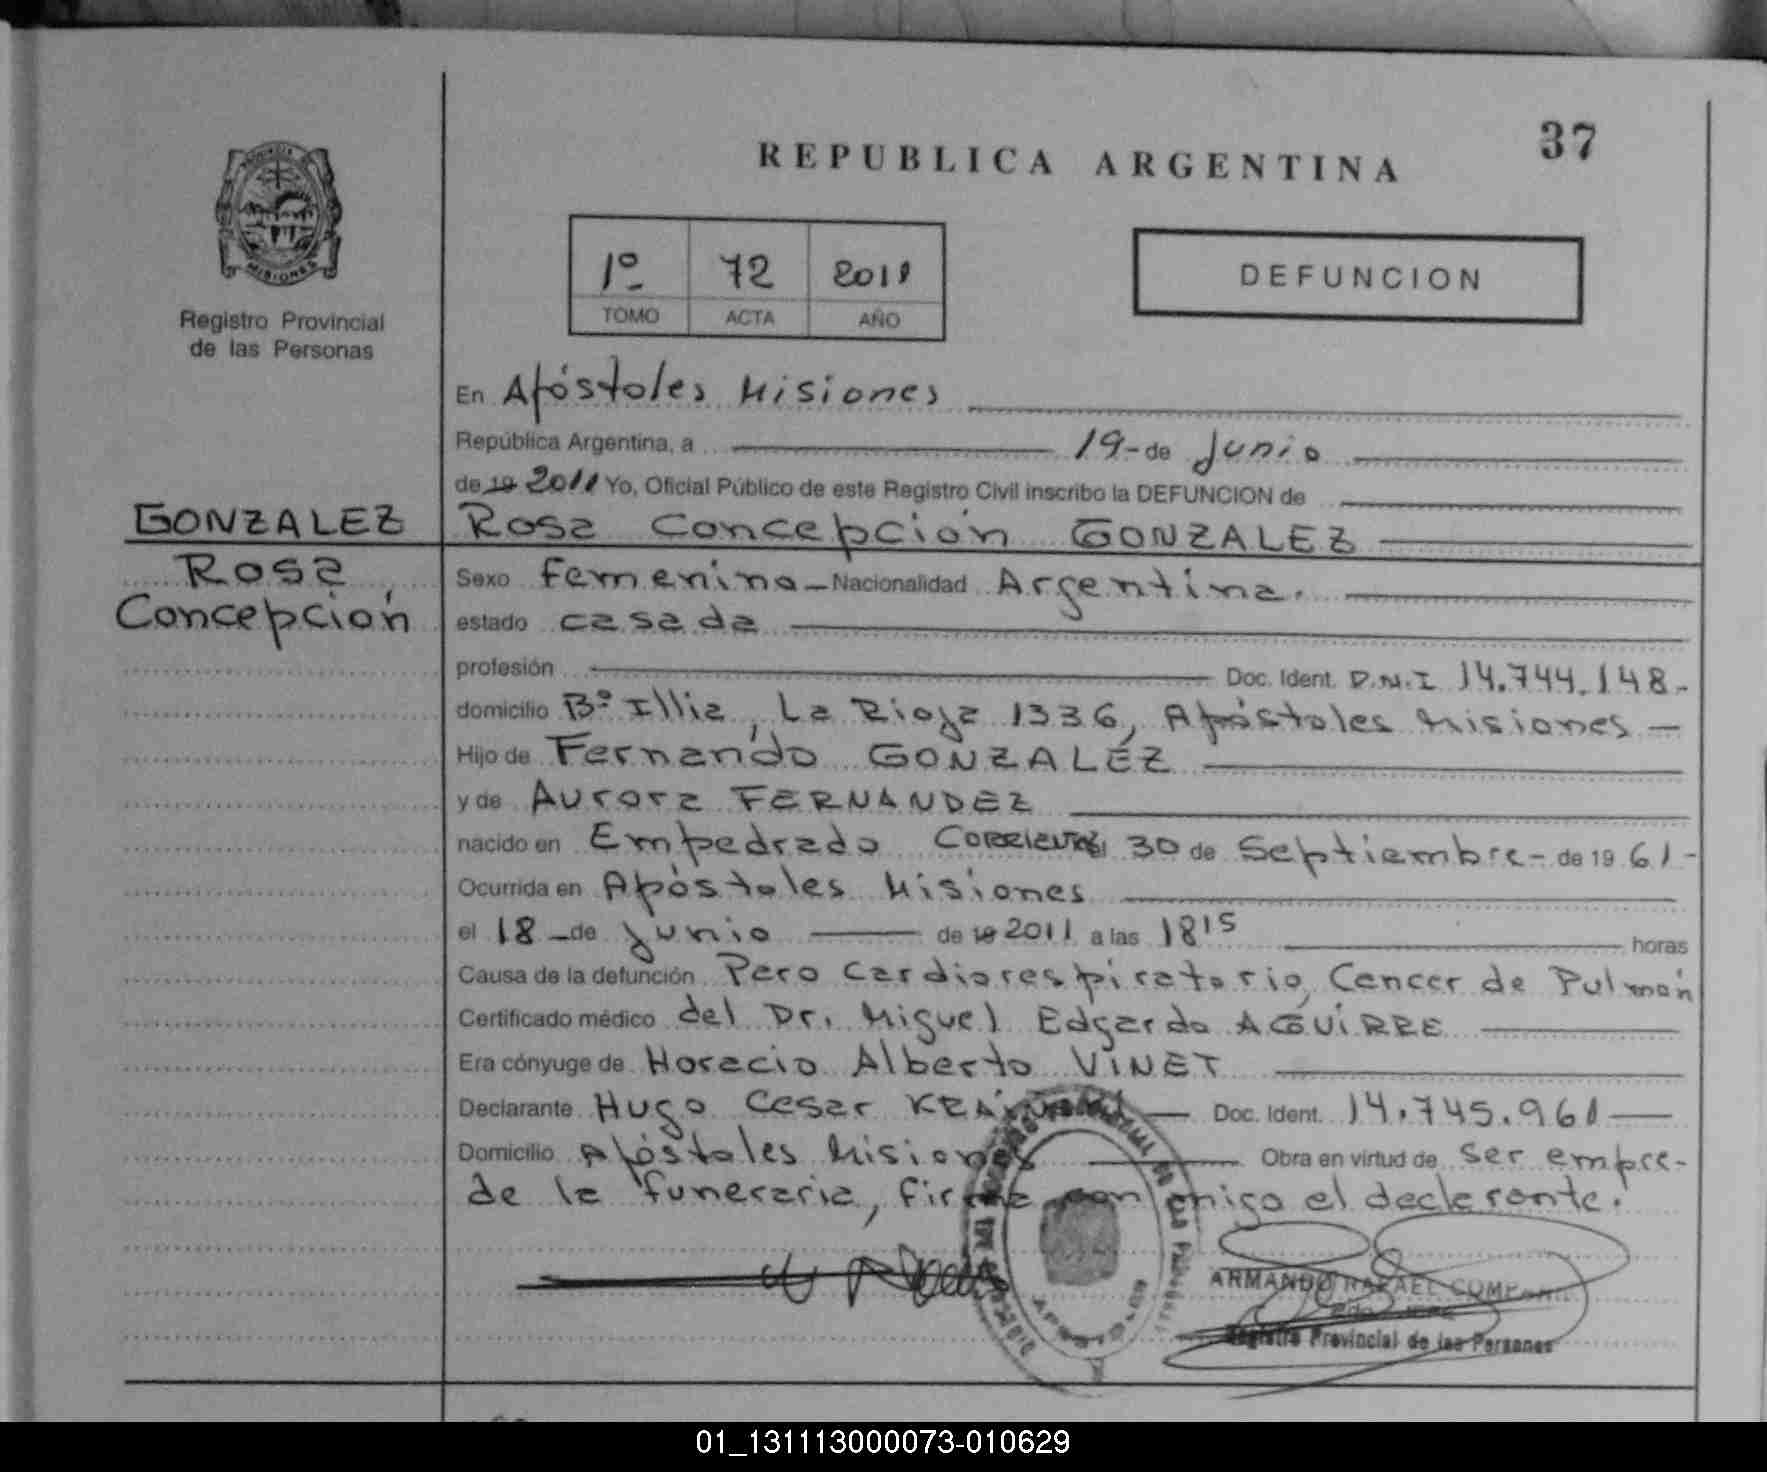 37
REPUBLICA ARGENTINA
PROVINCIA
MISIONES
Registro Provincial
de las Personas
1º 72 2011
TOMO ACTA AÑO
DEFUNCION
En Apóstoles Misiones
República Argentina, a 19- de Junio
de 19 2011 Yo, Oficial Público de este Registro Civil inscribo la DEFUNCION de
GONZALEZ
Rosa Concepción GONZALEZ
Rosa,
Concepción
Sexo Femenino - Nacionalidad Argentina.
estado casada
profesión Doc. Ident. D.N.I 14.744.148-
domicilio Bº Illia, La Rioja 1336, Apóstoles Misiones -
Hijo de Fernando GONZALEZ
y de Aurora FERNANDEZ
nacido en Empedrado Corrientes, 30 de Septiembre - de 19 61-
Ocurrida en Apóstoles Misiones
el 18 - de Junio de 19 2011 a las 18 15 horas
Causa de la defunción Paro cardiorespiratorio, Cancer de Pulmón
Certificado médico del Dr. Miguel Edgardo AGUIRRE
Era cónyuge de Horacio Alberto VINET
Declarante Hugo Cesar Doc. Ident. 14.745.961
Domicilio Apóstoles Misiones Obra en virtud de ser empre-
de la funeraria, firma con migo el declarante.
ARMANDO RAFAEL
Registro Provincial de las Personas
01_131113000073-010629